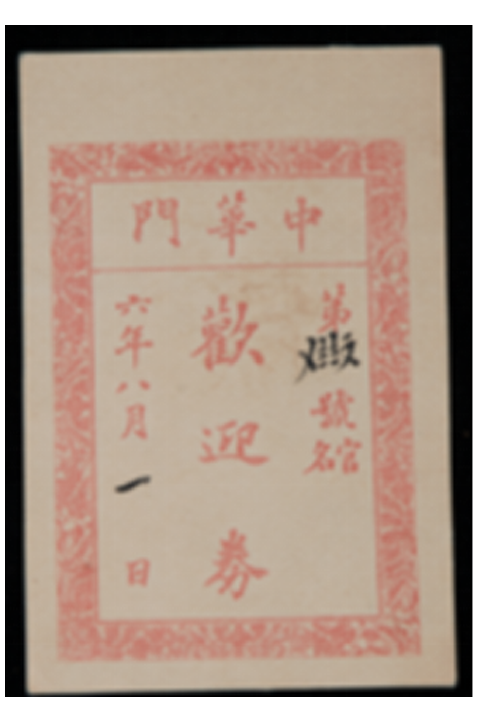 中華門
第
號
官名
歡迎券
六年八月一日